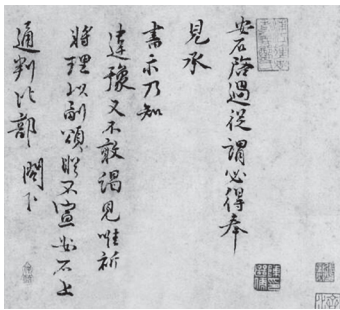 安石啓過從謂必得奉
見承
書示乃知
違豫又不敢謁見唯祈
將理以副頌眷不宣安石上
通判比部閣下